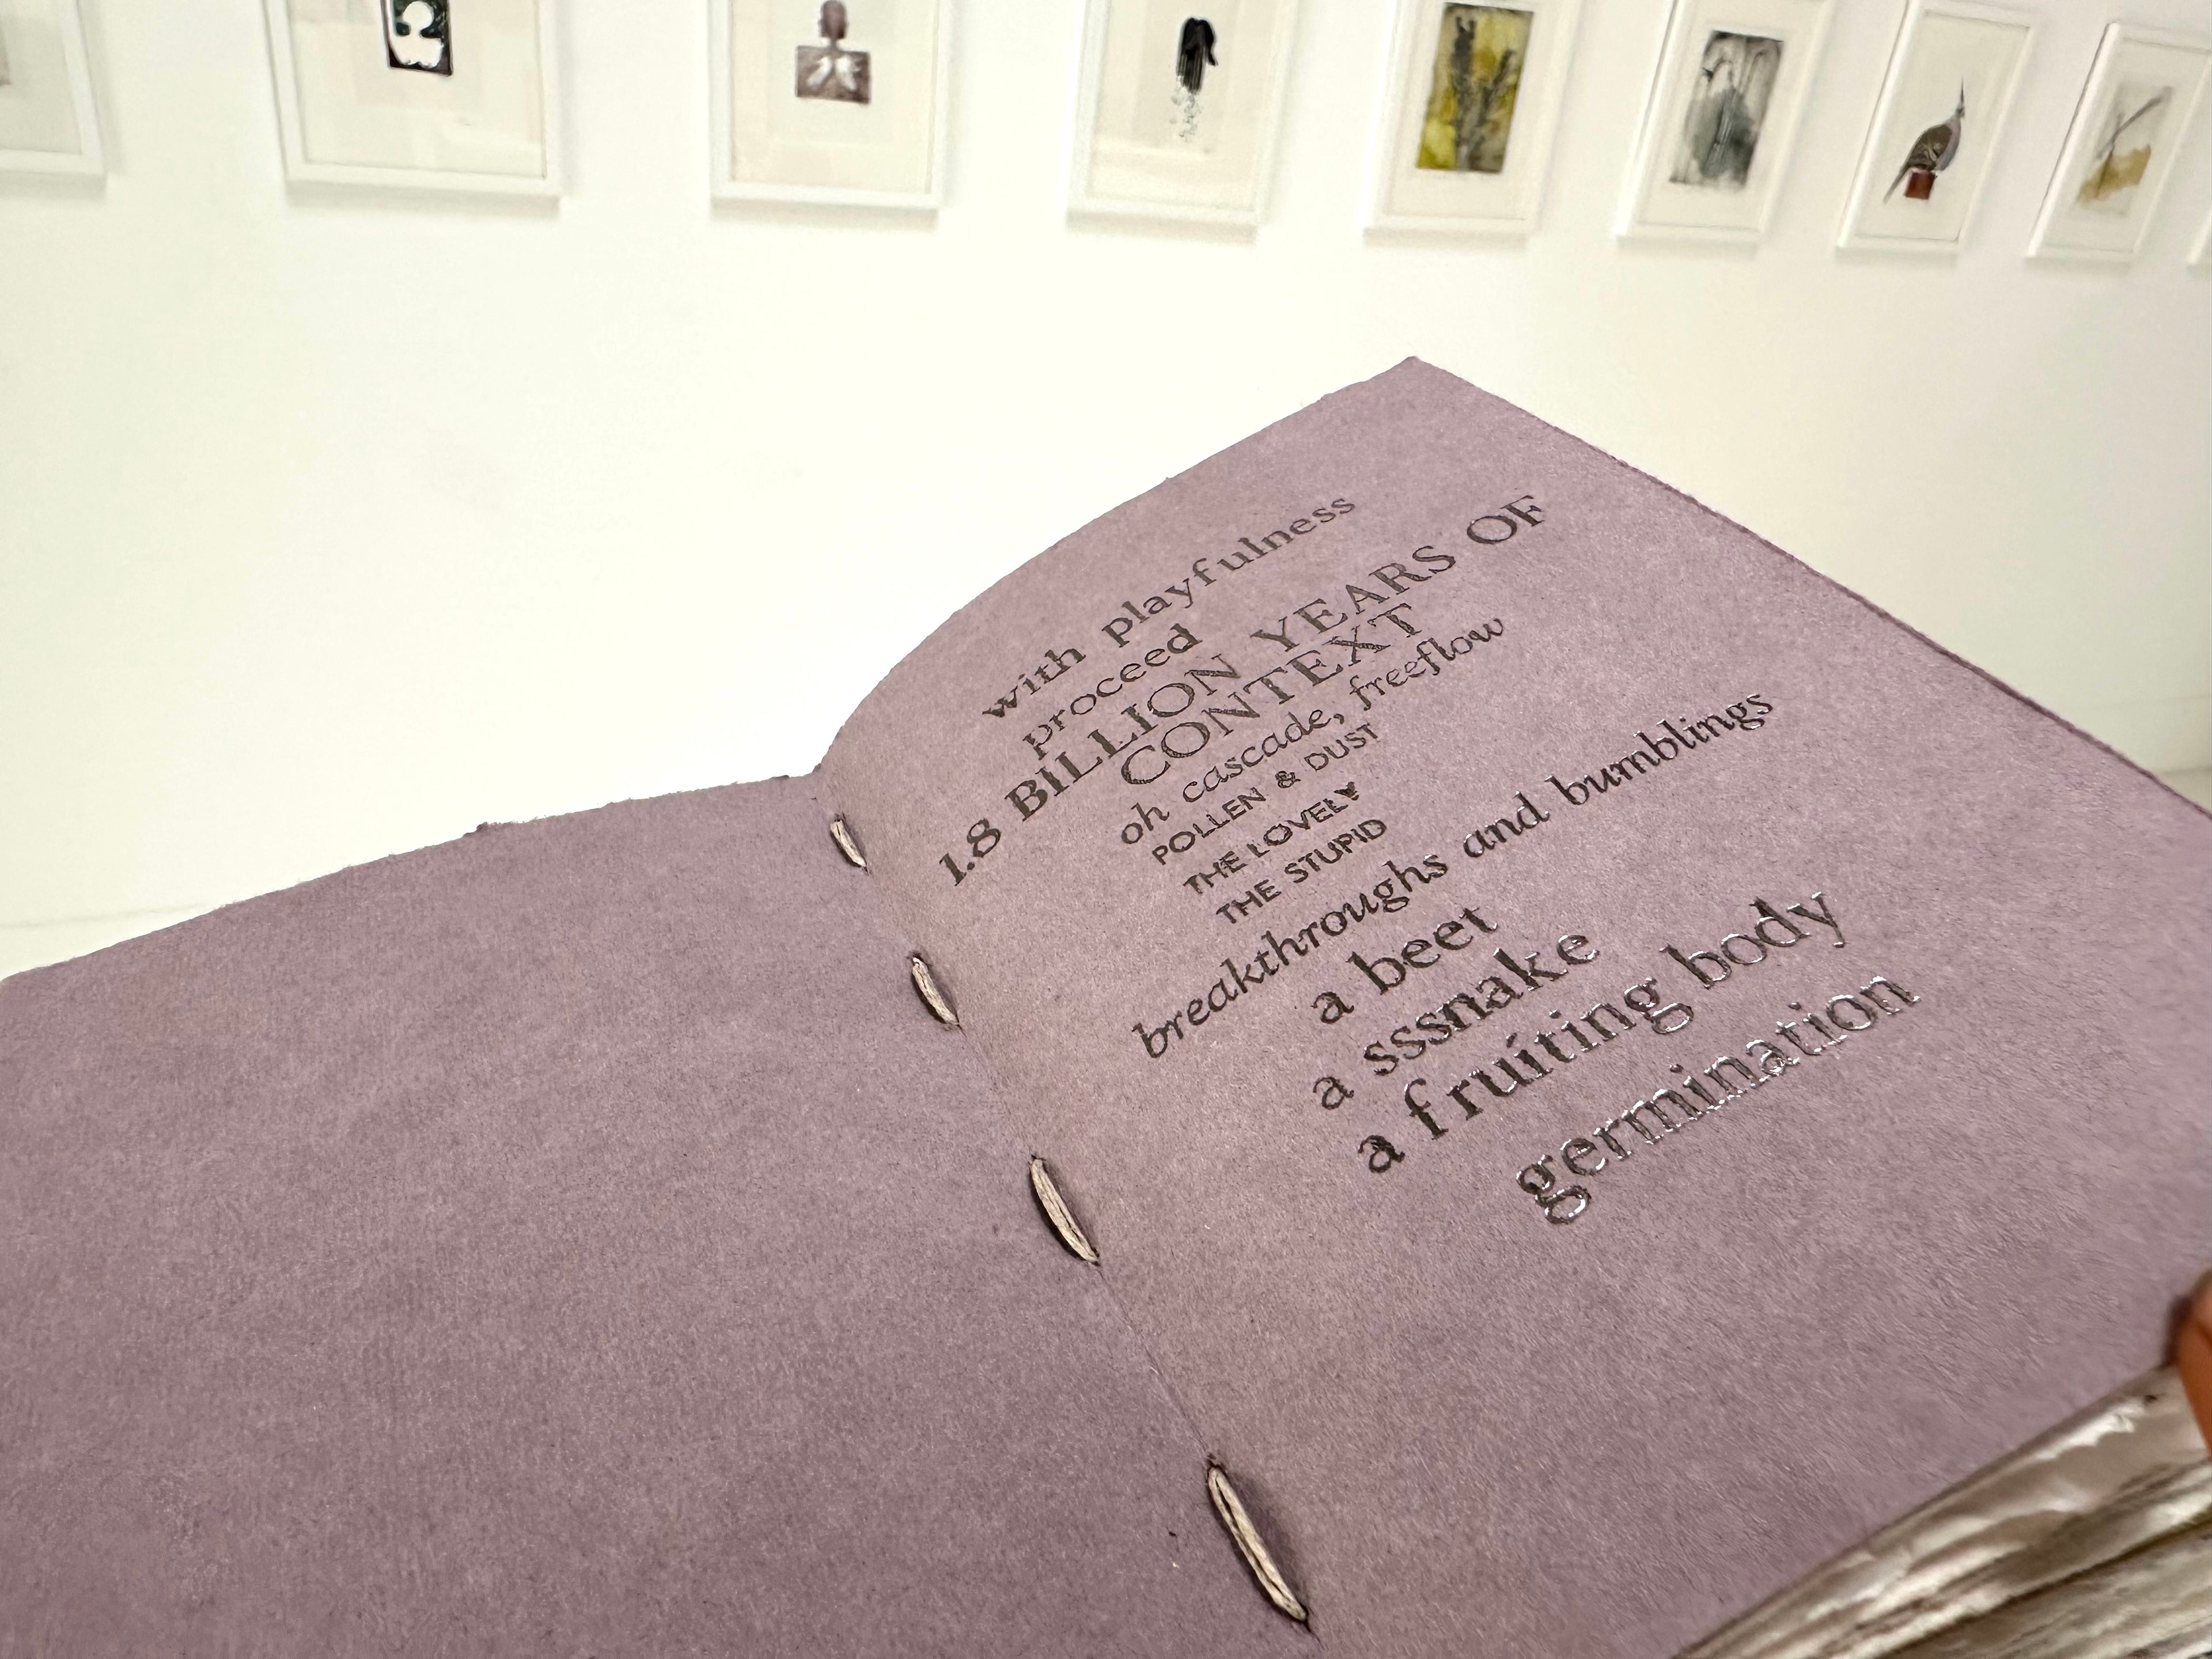 with playfulness
proceed
1.8 BILLION YEARS OF
CONTEXT
oh cascade, freeflow
POLLEN & DUST
THE LOVELY
THE STUPID
breakthroughs and bumblings
a beet
a sssnake
a fruiting body
germination